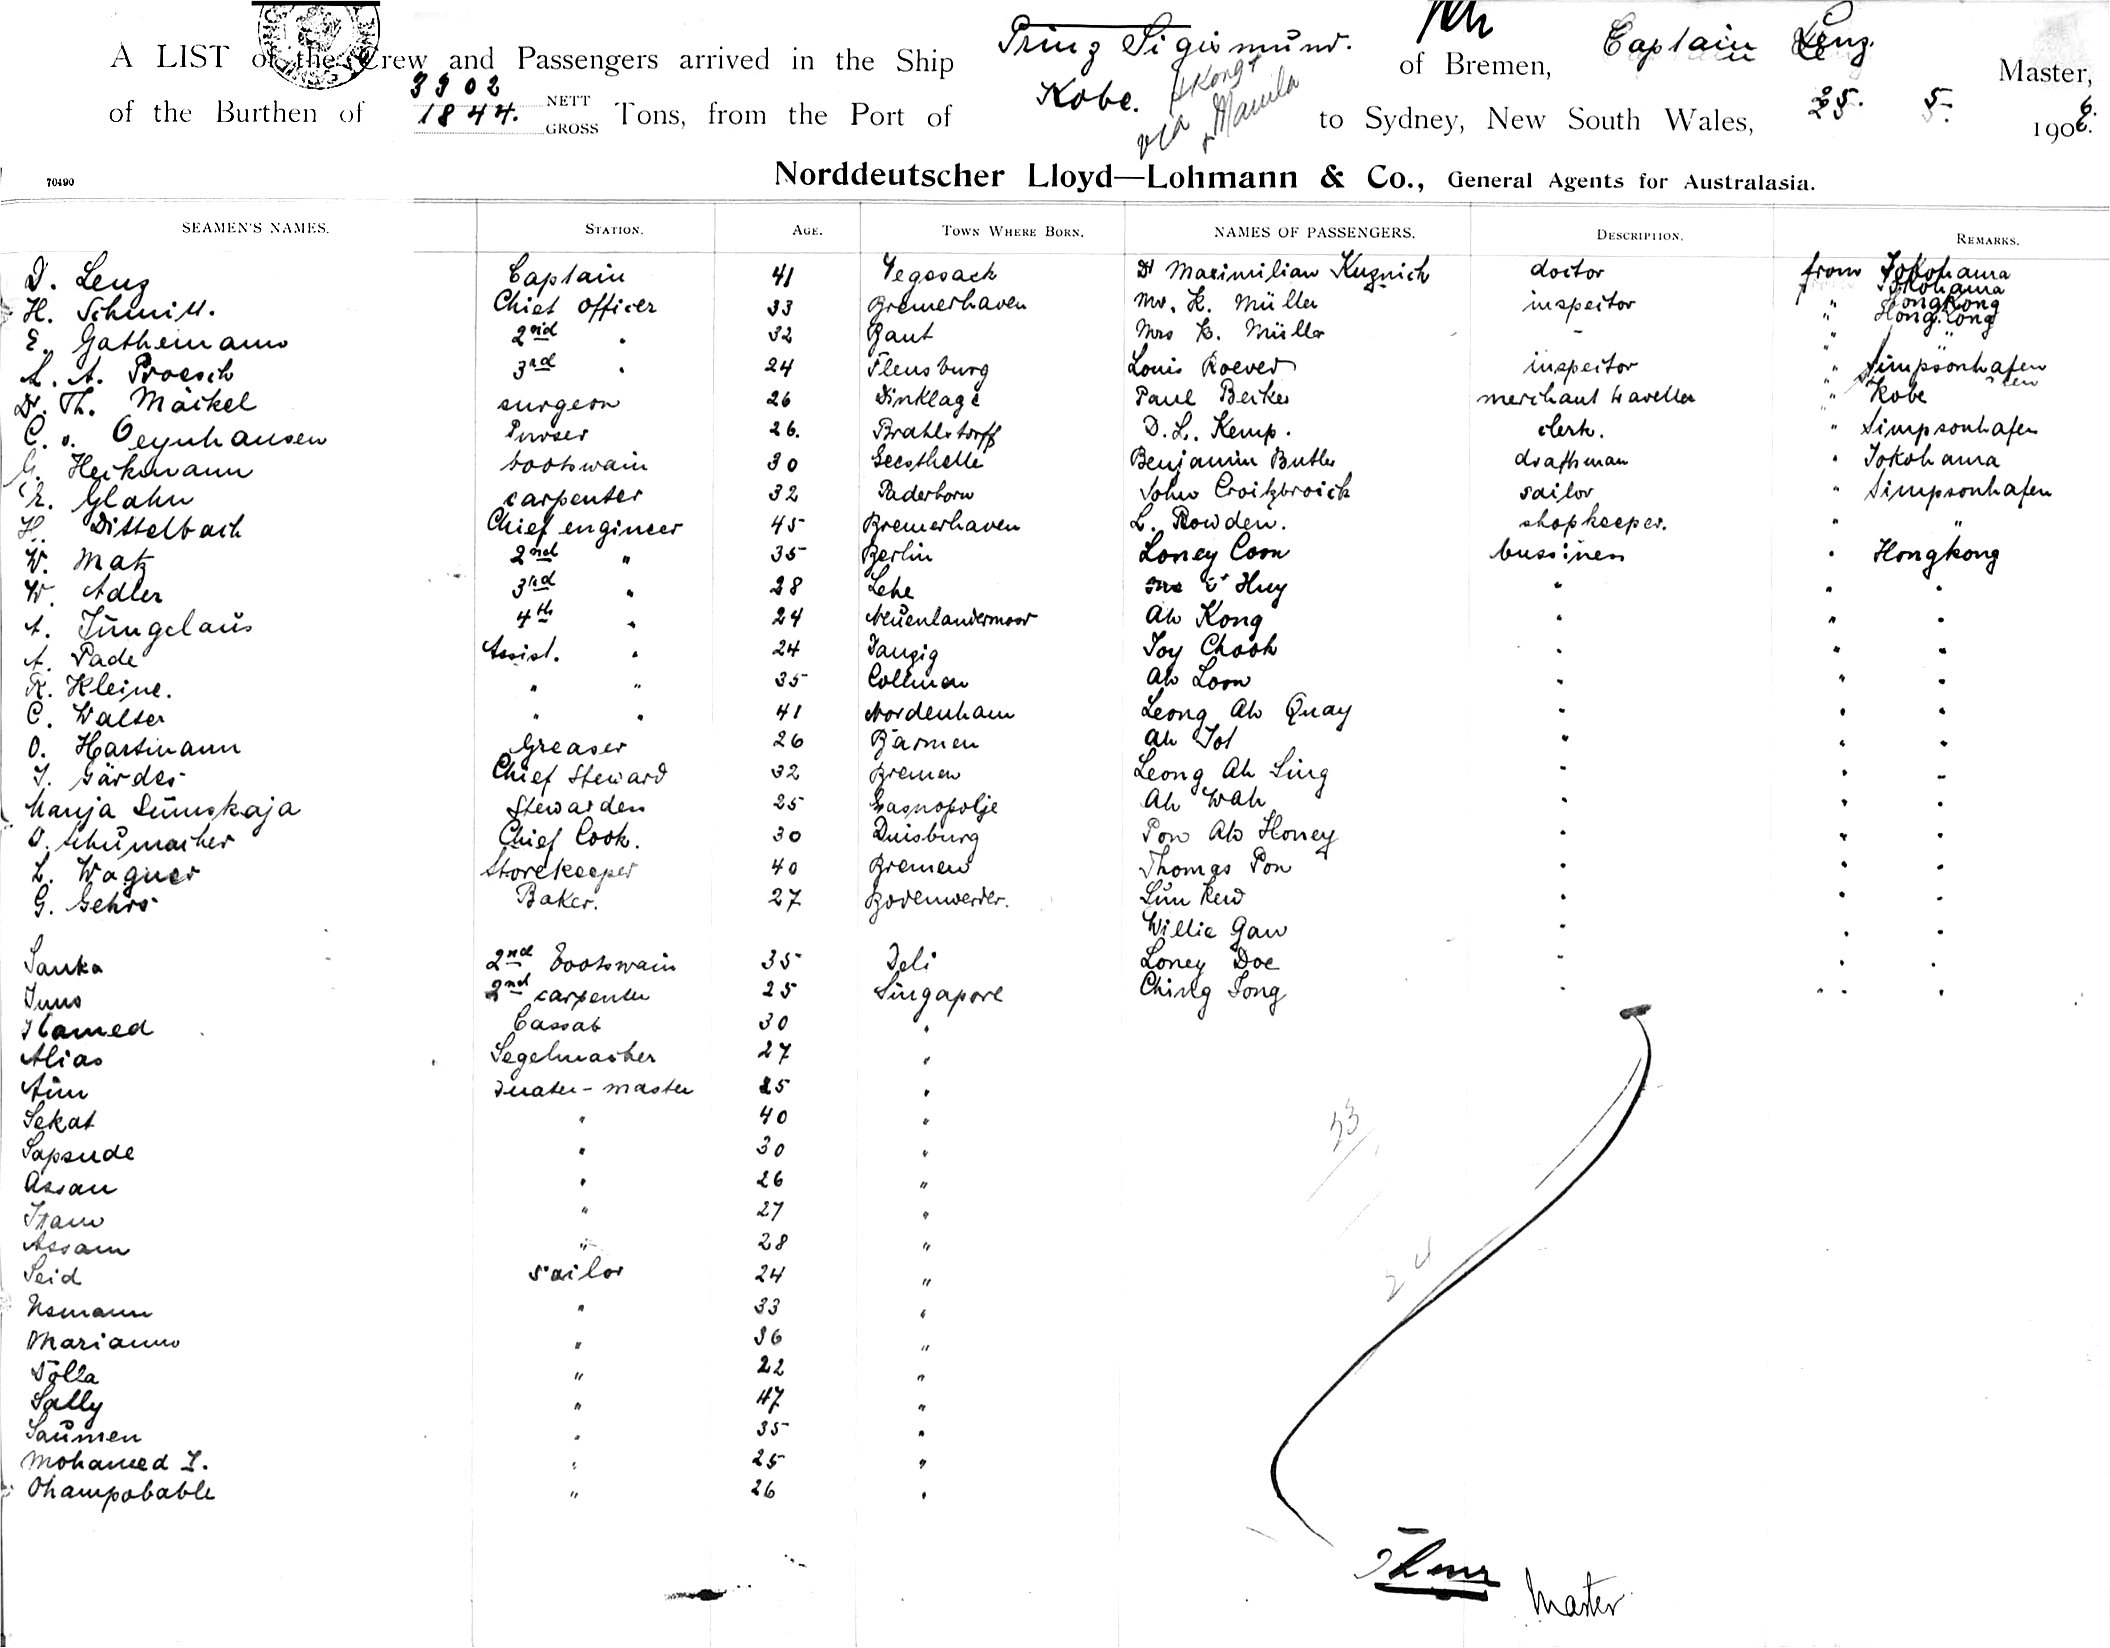 A LIST of the Crew and Passengers arrived in the Ship Prinz Sigismund. of Bremen, Captain Lenz. Master,
of the Burthen of 3302 NETT 1844. GROSS Tons, from the Port of Kobe. via Hkong + Manila to Sydney, New South Wales, 25. 5. 1906.
70490
Norddeutscher Lloyd—Lohmann & Co., General Agents for Australasia.
SEAMEN'S NAMES. STATION. AGE. TOWN WHERE BORN. NAMES OF PASSENGERS. DESCRIPTION. REMARKS.
D. Lenz Captain 41 Vegesack Dr Maximilian Kuznich doctor from Yokohama
H. Schmitt. Chief Officer 33 Bremerhaven Mr. K. Müller inspector " Hongkong
E. Gathemann 2nd " 32 Bant Mrs K. Müller - " "
L. A. Proesch 3rd " 24 Flensburg Louis Roever inspector " Simpsonhafen
Dr. Th. Mäckel surgeon 26 Dinklage Paul Becker merchant traveller " Kobe
C. v. Oeynhausen Purser 26. Brahlstorff D. L. Kemp. clerk. " Simpsonhafen
G. Heckmann bootswain 30 Geesthelle Benjamin Butler drafthman " Yokohama
E. Glahn carpenter 32 Paderborn John Croitzbroick sailor " Simpsonhafen
H. Dittelbach Chief engineer 45 Bremerhaven L. Rowden. shopkeeper. " "
W. Matz 2nd " 35 Berlin Loney Coon bussiness " Hongkong
W. Adler 3rd " 28 Lehe Huy " " "
A. Jüngclaüs 4th " 24 Neuenlandermoor Ah Kong " " "
A. Pade Assist. " 24 Danzig Joy Chook " " "
R. Kleine. " " 35 Collmen Ah Loon " " "
C. Walter " " 41 Nordenham Leong Ah Quay " " "
O. Hartmann Greaser 26 Barmen Ah Jot " " "
J. Gärdes Chief Steward 32 Bremen Leong Ah Sing " " "
Manja Dümskaja Stewardess 25 Gasnopolje Ah Wah " " "
O. Schumacher Chief Cook. 30 Duisburg Pon Ah Honey " " "
L. Wagner Storekeeper 40 Bremen Thomas Pon " " "
G. Gehrs Baker. 27 Bodenwerder. Sün Kew " " "
Willie Gaw " " "
Sanka 2nd Bootswain 35 Deli Loney Doe " " "
Junos 2nd carpenter 25 Singapore Ching Tong " " "
Hamed Cassab 30 "
Alias Segelmacher 27 "
Aün Quater-master 25 "
Sekat " 40 "
Sapsude " 30 "
Assan " 26 "
" 27 "
Assam " 28 "
Seid Sailor 24 "
Usmann " 33 "
Marianno " 36 "
Tölla " 22 "
Sally " 47 "
Saümen " 35 "
Mohamed I. " 25 "
Ohampobable " 26 "
33
24
Master